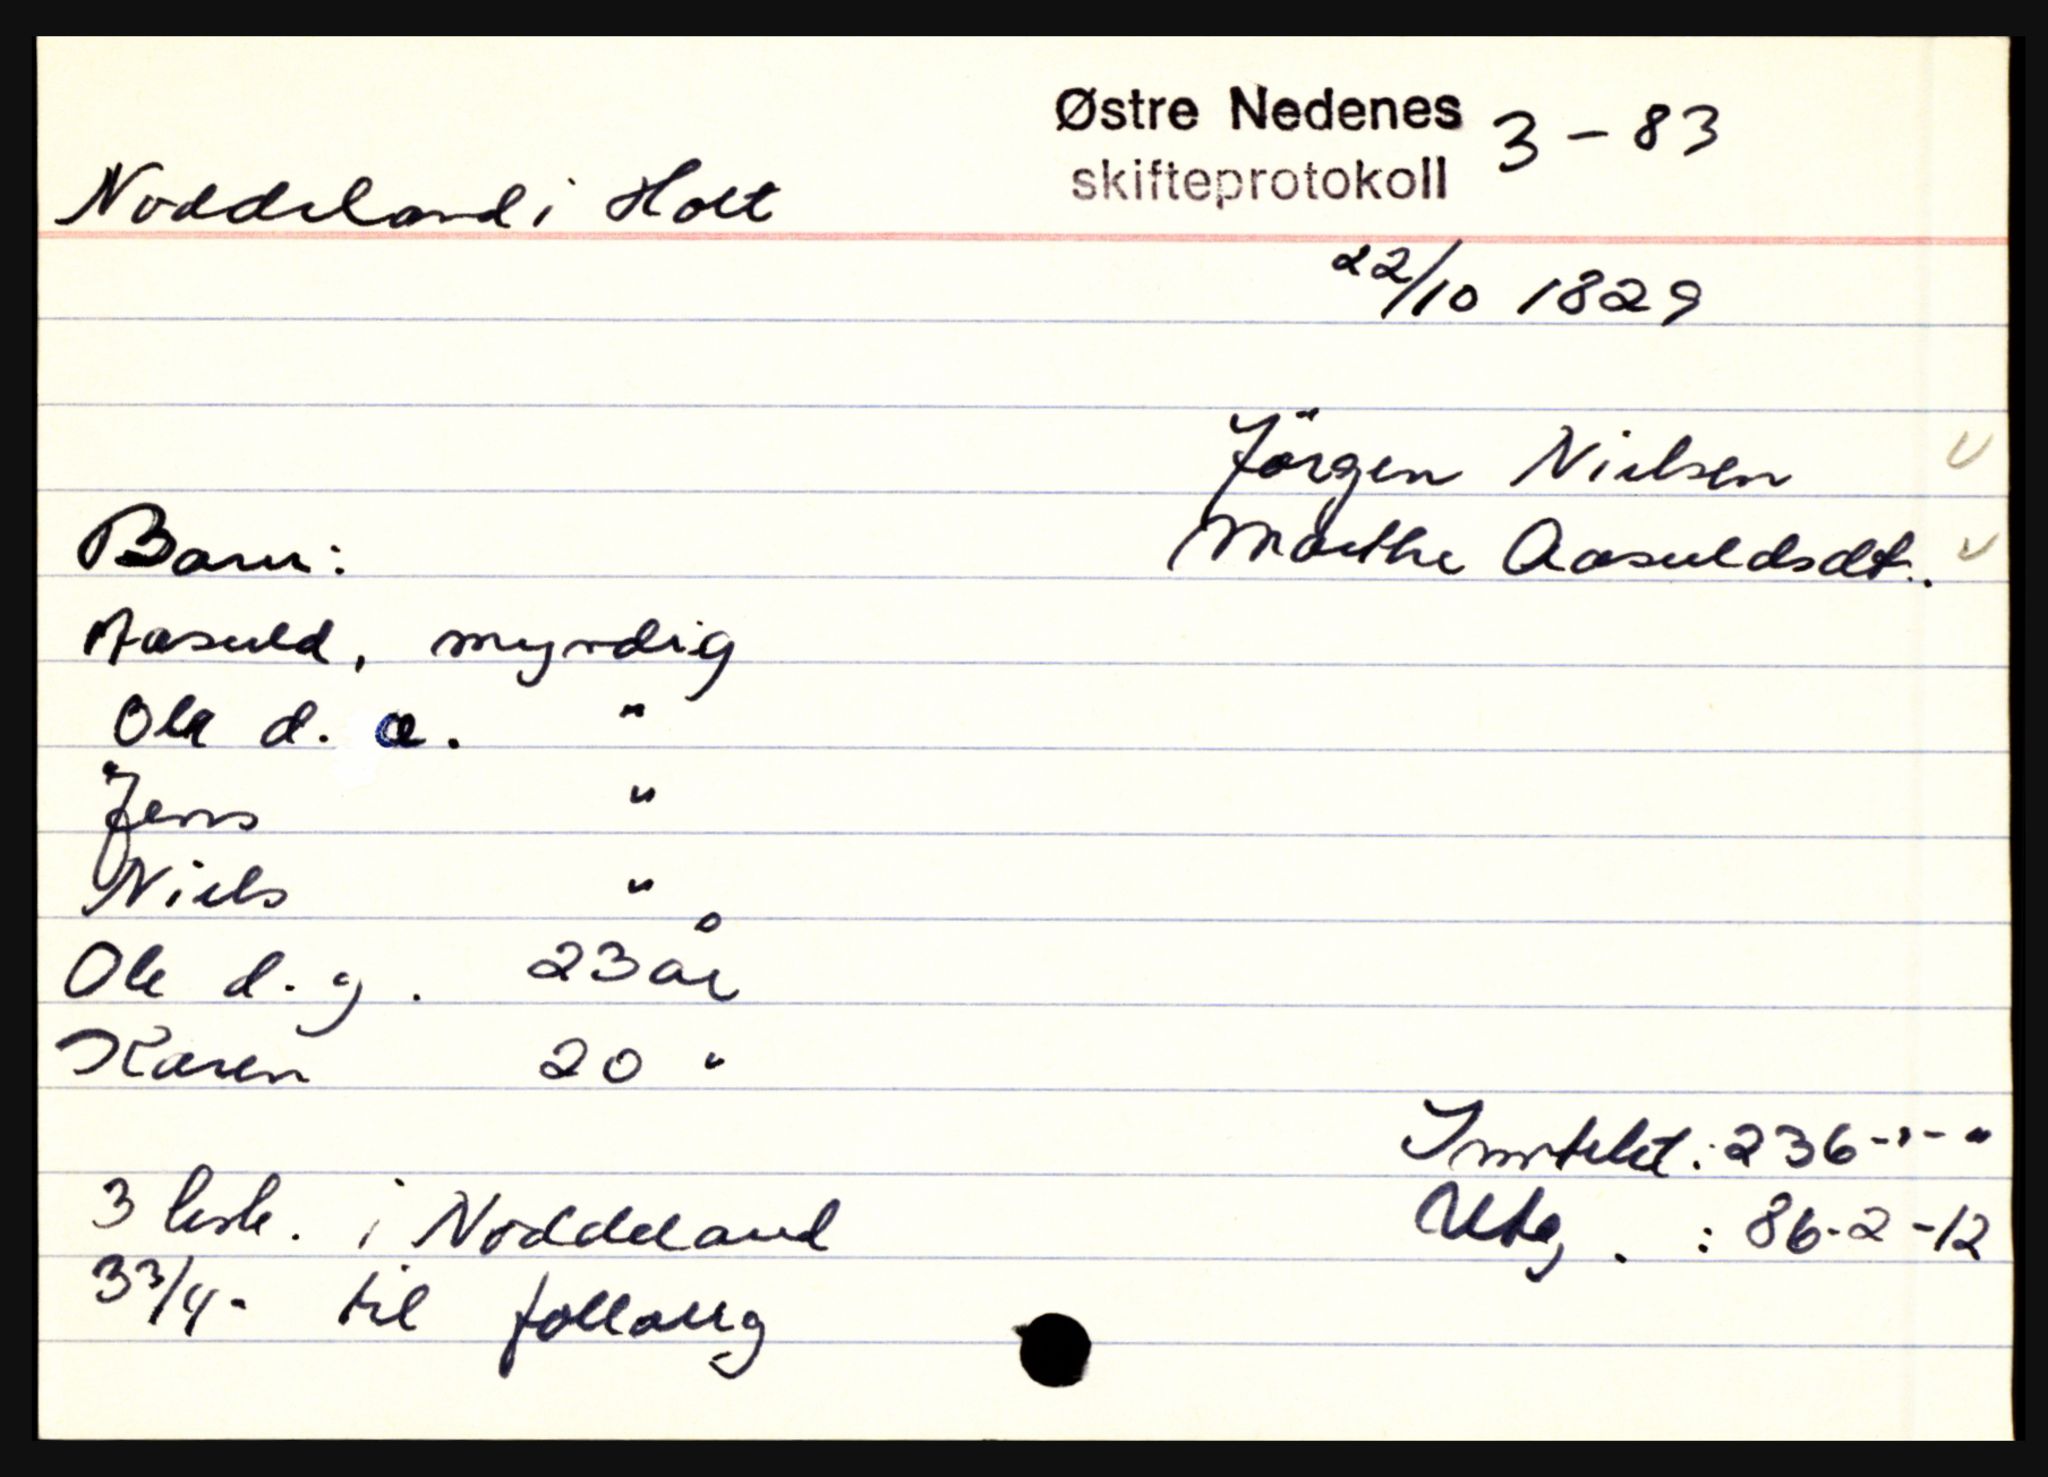 Østre Nedenes 3-83
skifteprotokoll
Noddeland i Holt
22/10 1829
Jörgen Nielsen
Marthe Aasuldsdt.
Barn:
Aasuld, myndig
Ole d. e. "
Jens "
Niels "
Ole d. y. 23 år
Karen 20 "
Inntekt: 236-"-"
Utg. : 86-2-12
3 i Noddeland
3 3/4 - til